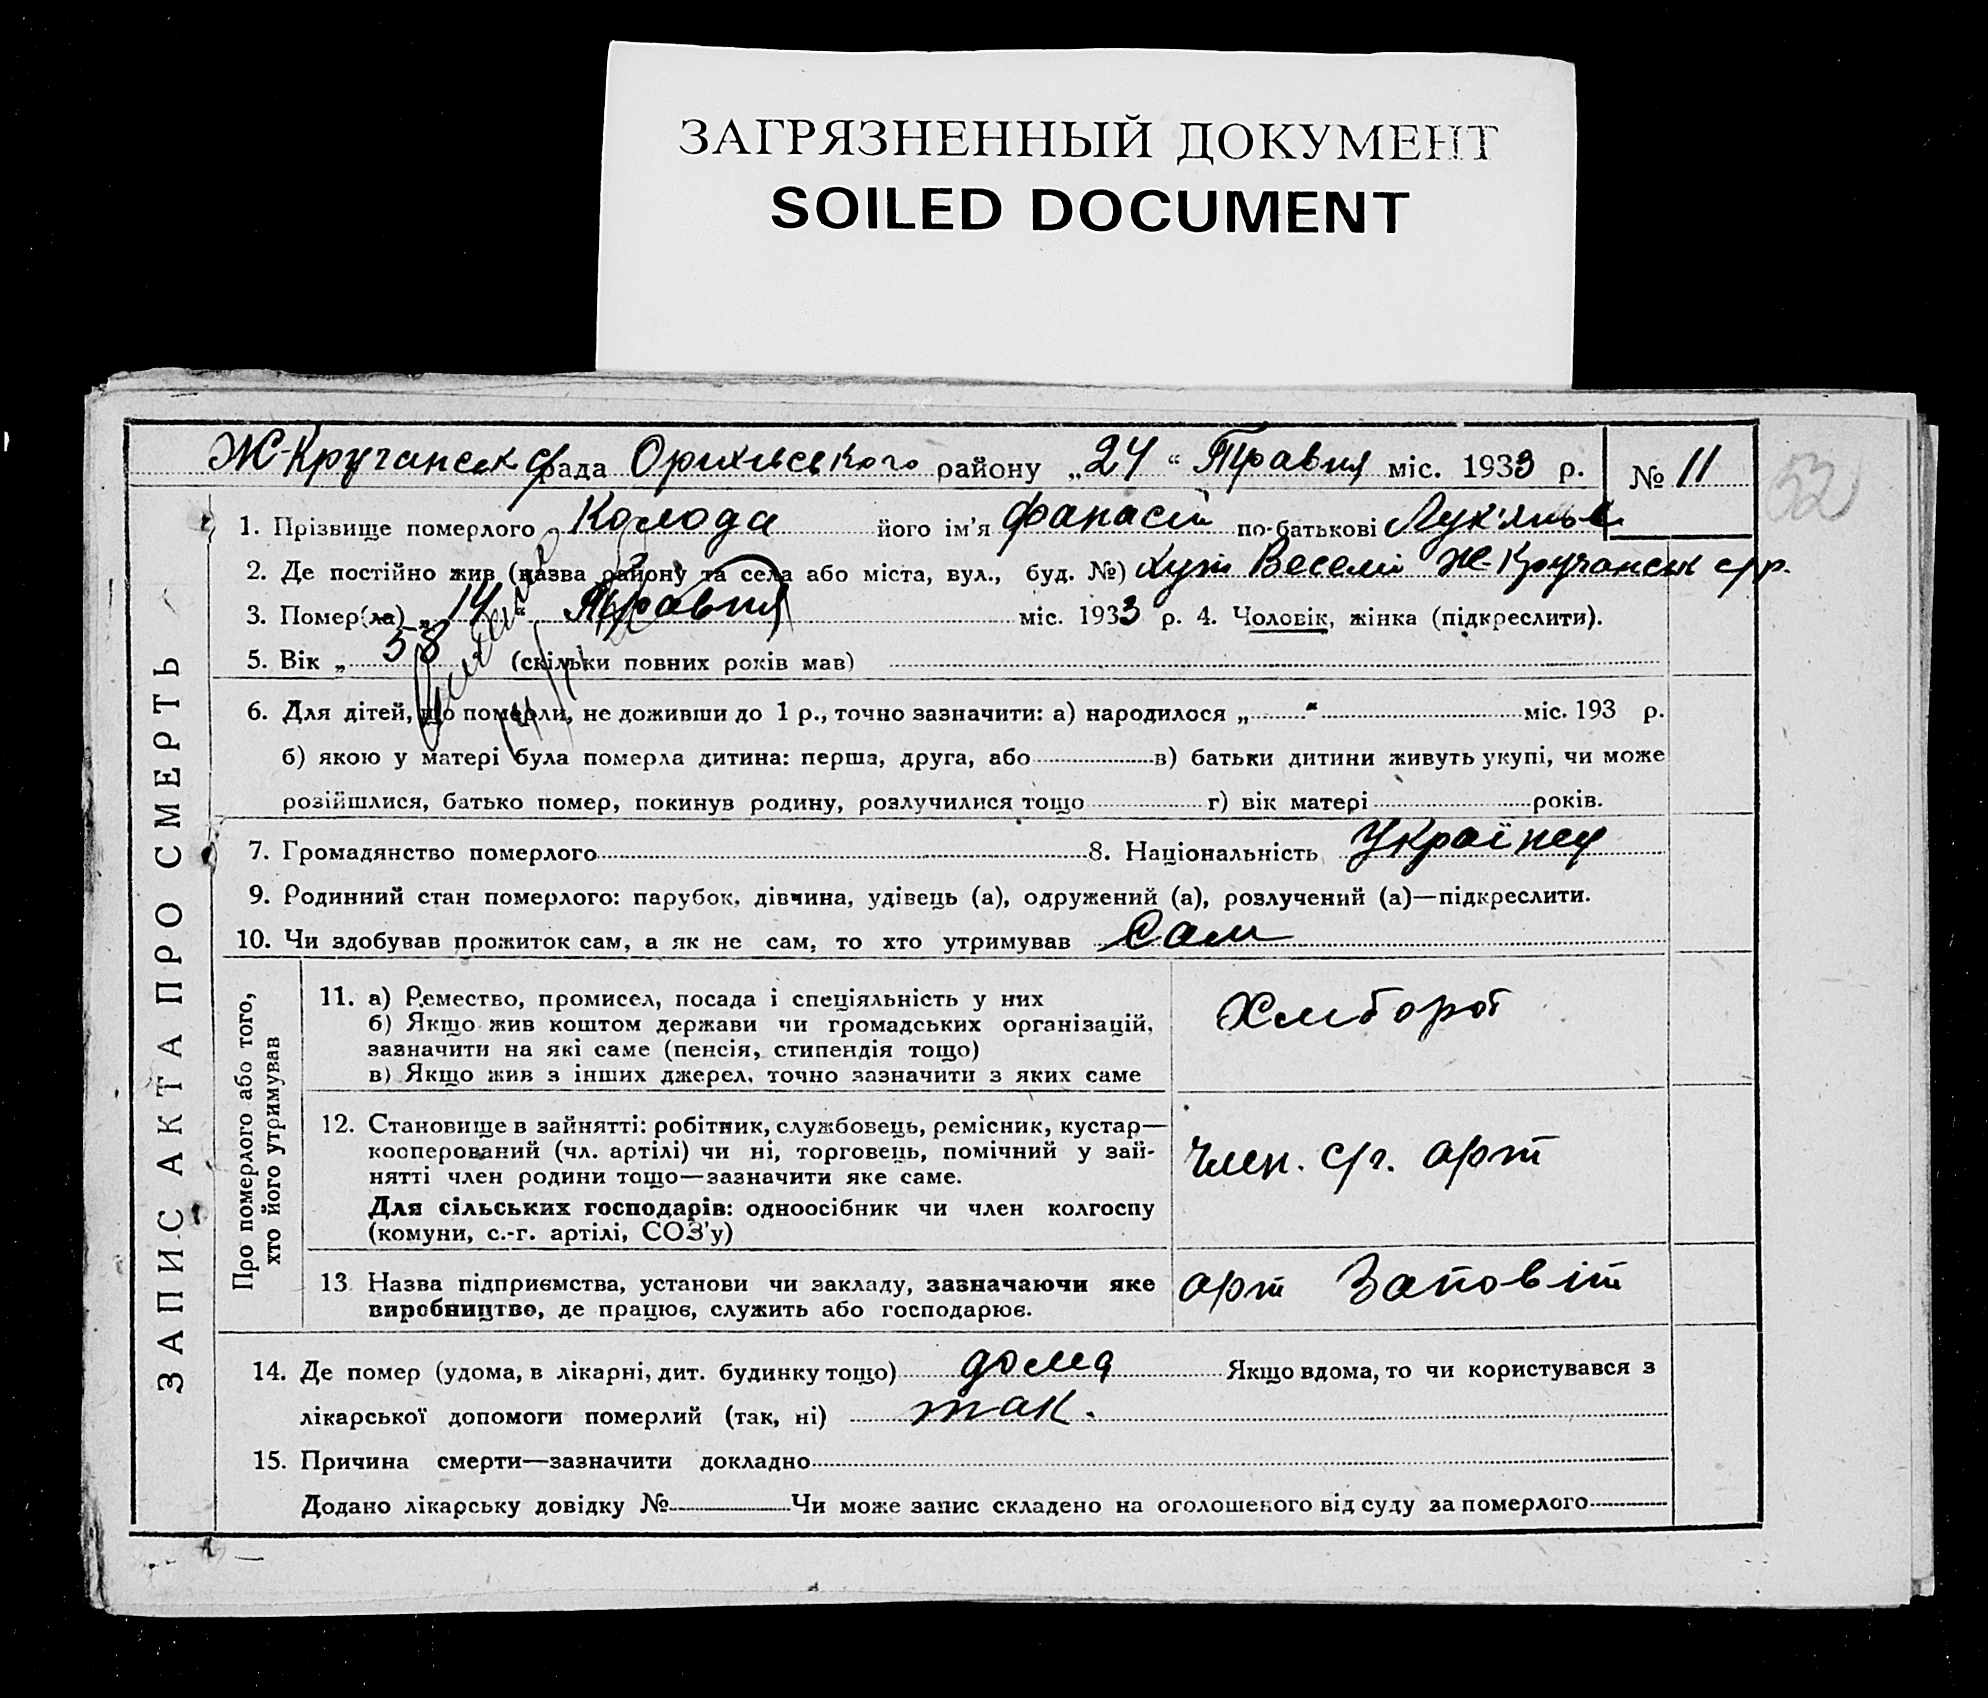 ЗАГРЯЗНЕННЫЙ ДОКУМЕНТ
SOILED DOCUMENT
Ж-Кручанськ рада Оріхівського району „24“ Травня міс. 1933 р. № 11
52
1. Прізвище померлого Колода його ім’я Фанасій по-батькові Лук'янов
2. Де постійно жив (назва району та села або міста, вул., буд. №) Хут Веселий Ж-Кручанськ с/р.
3. Помер(ла) „14“ Травня міс. 1933 р. 4. Чоловік, жінка (підкреслити).
5. Вік „58 (скільки повних років мав)
6. Для дітей, що померли, не доживши до 1 р., точно зазначити: а) народилося „ “ міс. 193 р.
б) якою у матері була померла дитина: перша, друга, або в) батьки дитини живуть укупі, чи може
розійшлися, батько помер, покинув родину, розлучилися тощо г) вік матері років.
7. Громадянство померлого 8. Національність Українец
9. Родинний стан померлого: парубок, дівчина, удівець (а), одружений (а), розлучений (а)—підкреслити.
10. Чи здобував прожиток сам, а як не сам, то хто утримував Сам
ЗАПИС АКТА ПРО СМЕРТЬ
Про померлого або того,
хто його утримував
11. а) Ремество, промисел, посада і спеціяльність у них
б) Якщо жив коштом держави чи громадських організацій,
зазначити на які саме (пенсія, стипендія тощо)
в) Якщо жив з інших джерел, точно зазначити з яких саме
Хлібороб
12. Становище в зайнятті: робітник, службовець, ремісник, кустар—
кооперований (чл. артілі) чи ні, торговець, помічний у зай-
нятті член родини тощо—зазначити яке саме.
Для сільських господарів: одноосібник чи член колгоспу
(комуни, с.-г. артілі, СОЗ'у)
Член. с/г. арт
13. Назва підприємства, установи чи закладу, зазначаючи яке
виробництво, де працює, служить або господарює.
арт Заповіт
14. Де помер (удома, в лікарні, дит. будинку тощо) дома Якщо вдома, то чи користувався з
лікарської допомоги померлий (так, ні) так.
15. Причина смерти—зазначити докладно
Додано лікарську довідку № Чи може запис складено на оголошеного від суду за померлого